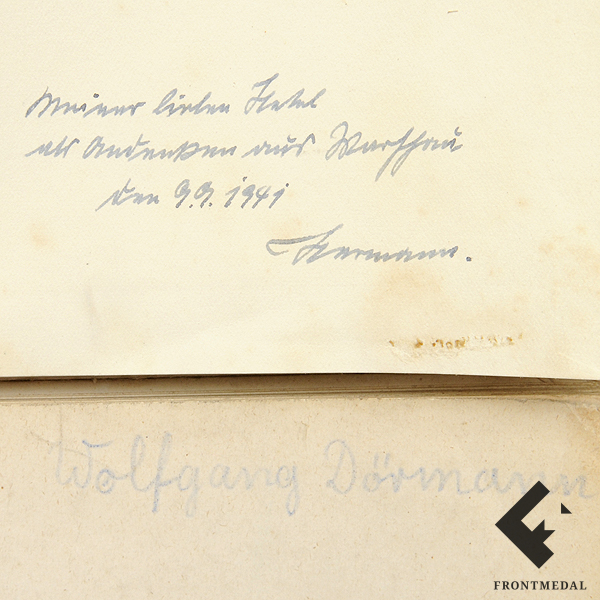 Meiner lieben
als Andenken aus Warschau
den 9.9. 1941
Hermann.
Wolfgang Dörmann
FRONTMEDAL